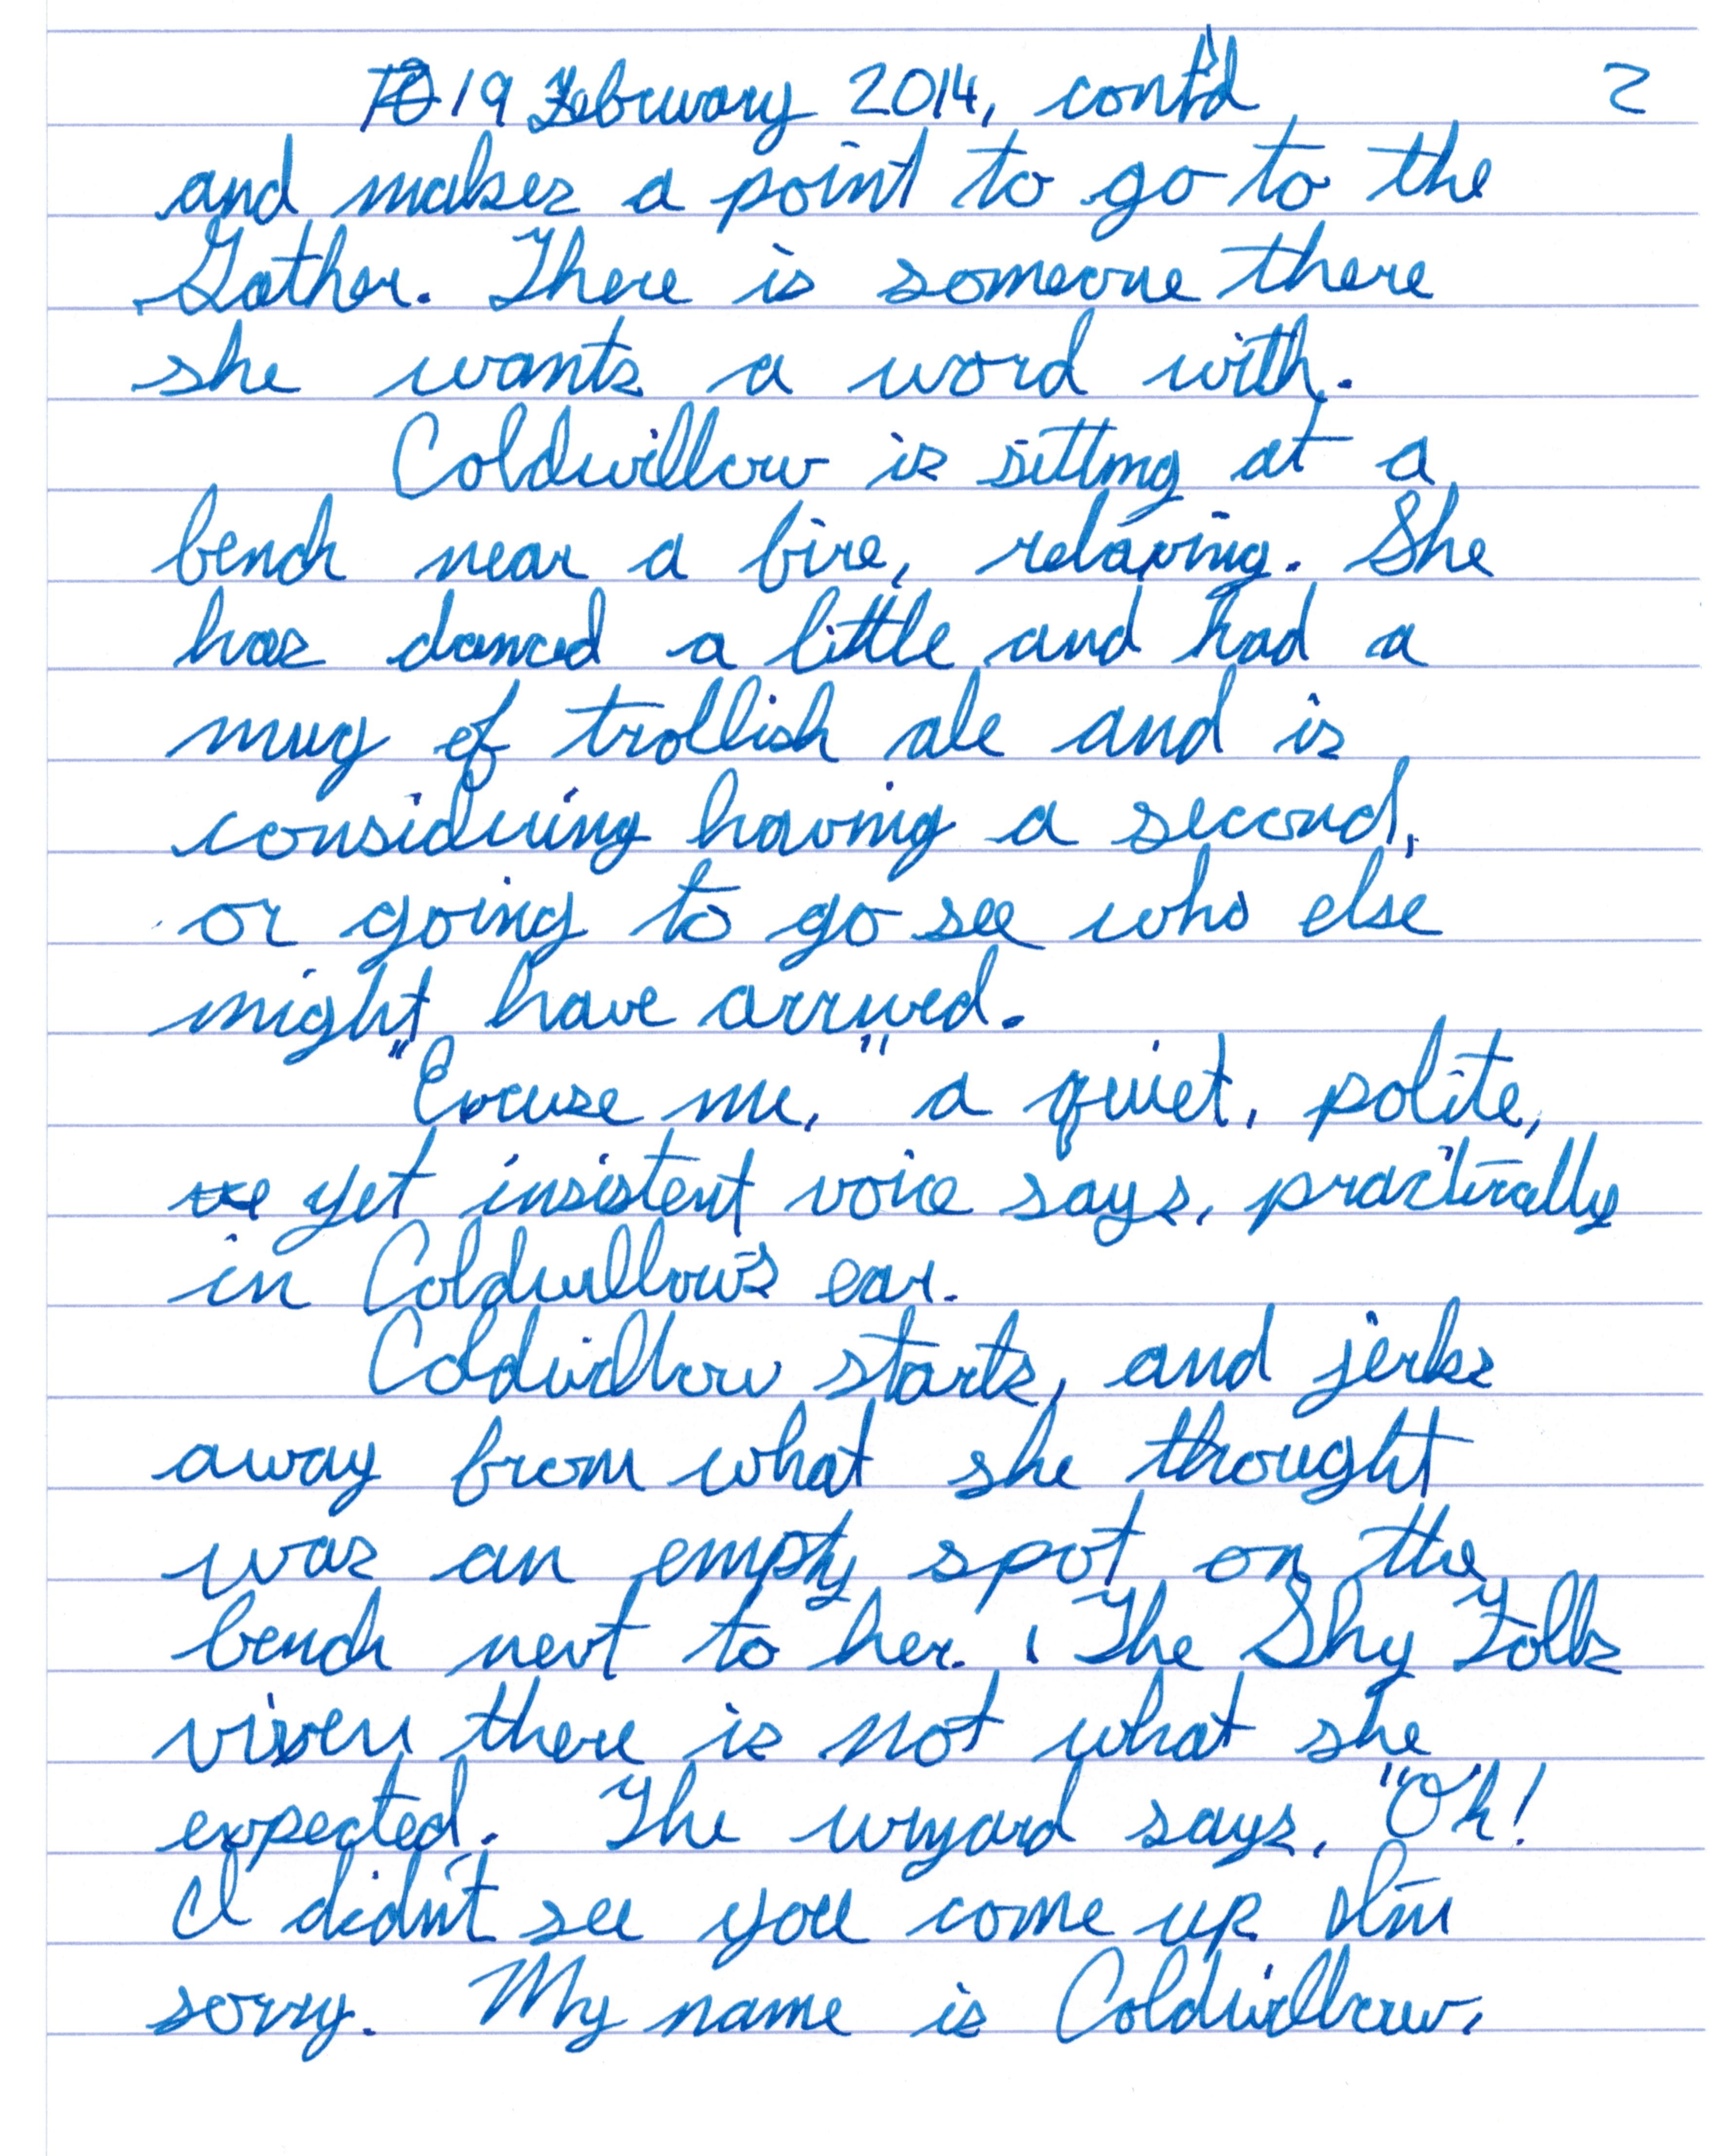 19 February 2014, cont'd 2
and makes a point to go to the
Gather. There is someone there
she wants a word with.
Coldwillow is sitting at a
bench near a fire, relaxing. She
has danced a little and had a
mug of trollish ale and is
considering having a second,
or going to go see who else
might have arrived.
"Excuse me," a quiet, polite,
yet insistent voice says, practically
in Coldwillow's ear.
Coldwillow starts, and jerks
away from what she thought
was an empty spot on the
bench next to her. The Shy Folk
vixen there is not what she
expected. The wyard says, "Oh!
I didn't see you come up. I'm
sorry. My name is Coldwillow.